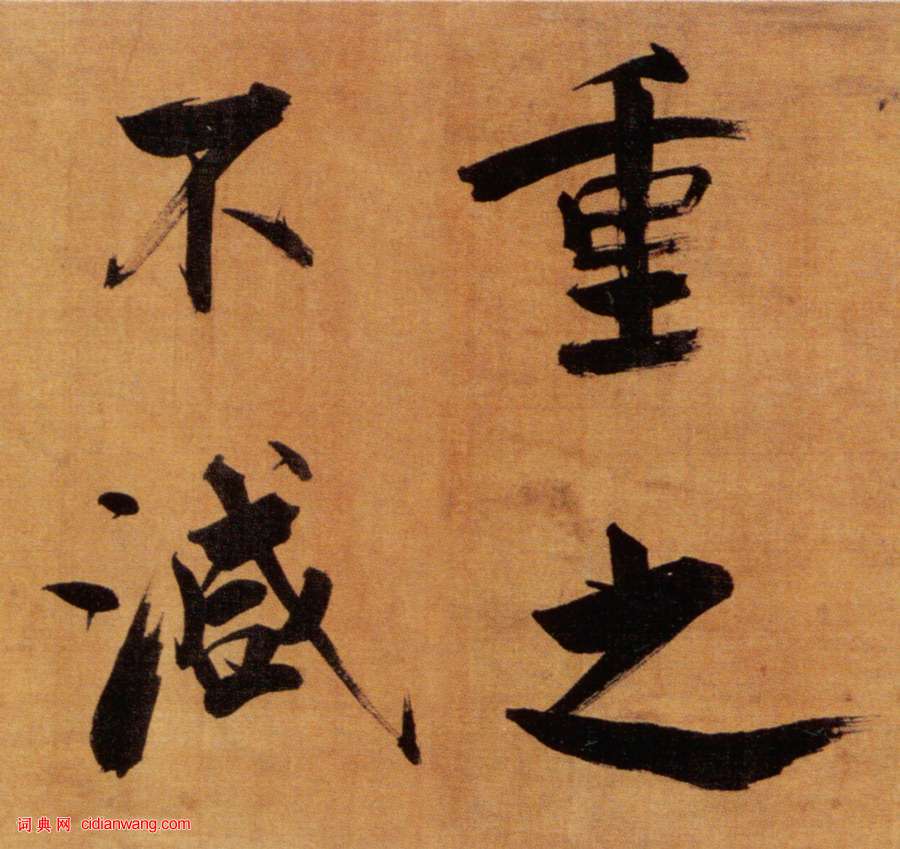 重之
不減
词典网 cidianwang.com